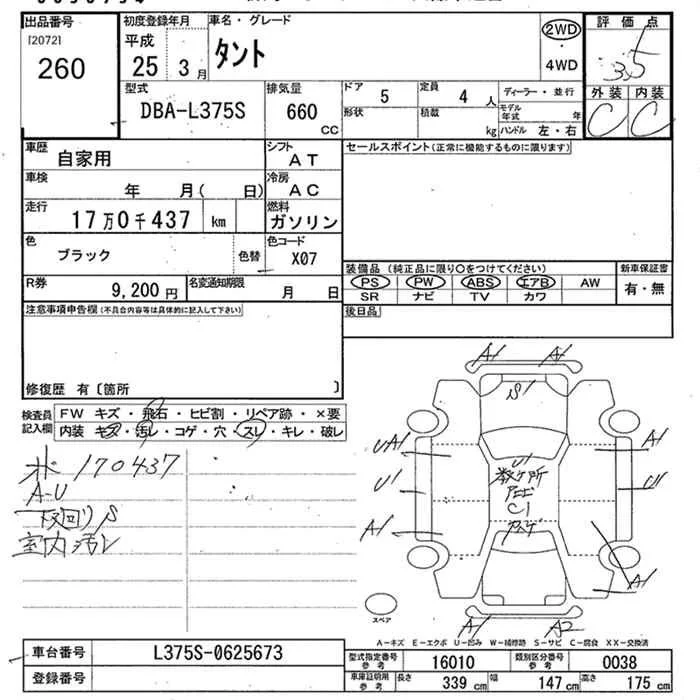 出品番号
[2072]
260
初度登録年月
平成
25 3月
車名・グレード
タント
2WD
・
4WD
評価点
3.5
外装 内装
C C
型式
DBA-L375S
排気量
660
CC
ドア 5
定員 4 人
形状
積載 kg
ディーラー・並行
モデル年式 年
ハンドル 左・右
車歴
自家用
シフト
AT
セールスポイント(正常に機能するものに限ります)
車検
年 月( 日)
冷房
AC
走行
17万0千437 km
燃料
ガソリン
色
ブラック
色替
色コード
X07
R券
9,200 円
名変通知期限
月 日
装備品(純正品に限り〇をつけてください)
PS PW ABS エアB AW
SR ナビ TV カワ
新車保証書
有・無
後日品
注意事項申告欄(不具合内容等は具体的に記入して下さい)
修復歴 有〔箇所 〕
検査員
記入欄
FW キズ・飛石・ヒビ割・リペア跡・×要
内装 キズ・汚レ・コゲ・穴・スレ・キレ・破レ
170437
A-U
下回りS
室内汚レ
A1 A1
S1
UA1
U1
A1
U1
数ヶ所
C1
A1
U1
A1
A1 A2
スペア
A-キズ E-エクボ U-凹み W-補修跡 S-サビ C-腐食 XX-交換済
車台番号
L375S-0625673
登録番号
型式指定番号
参考
16010
類別区分番号
参考
0038
車庫証明用
参考
長さ
339 cm
幅
147 cm
高さ
175 cm